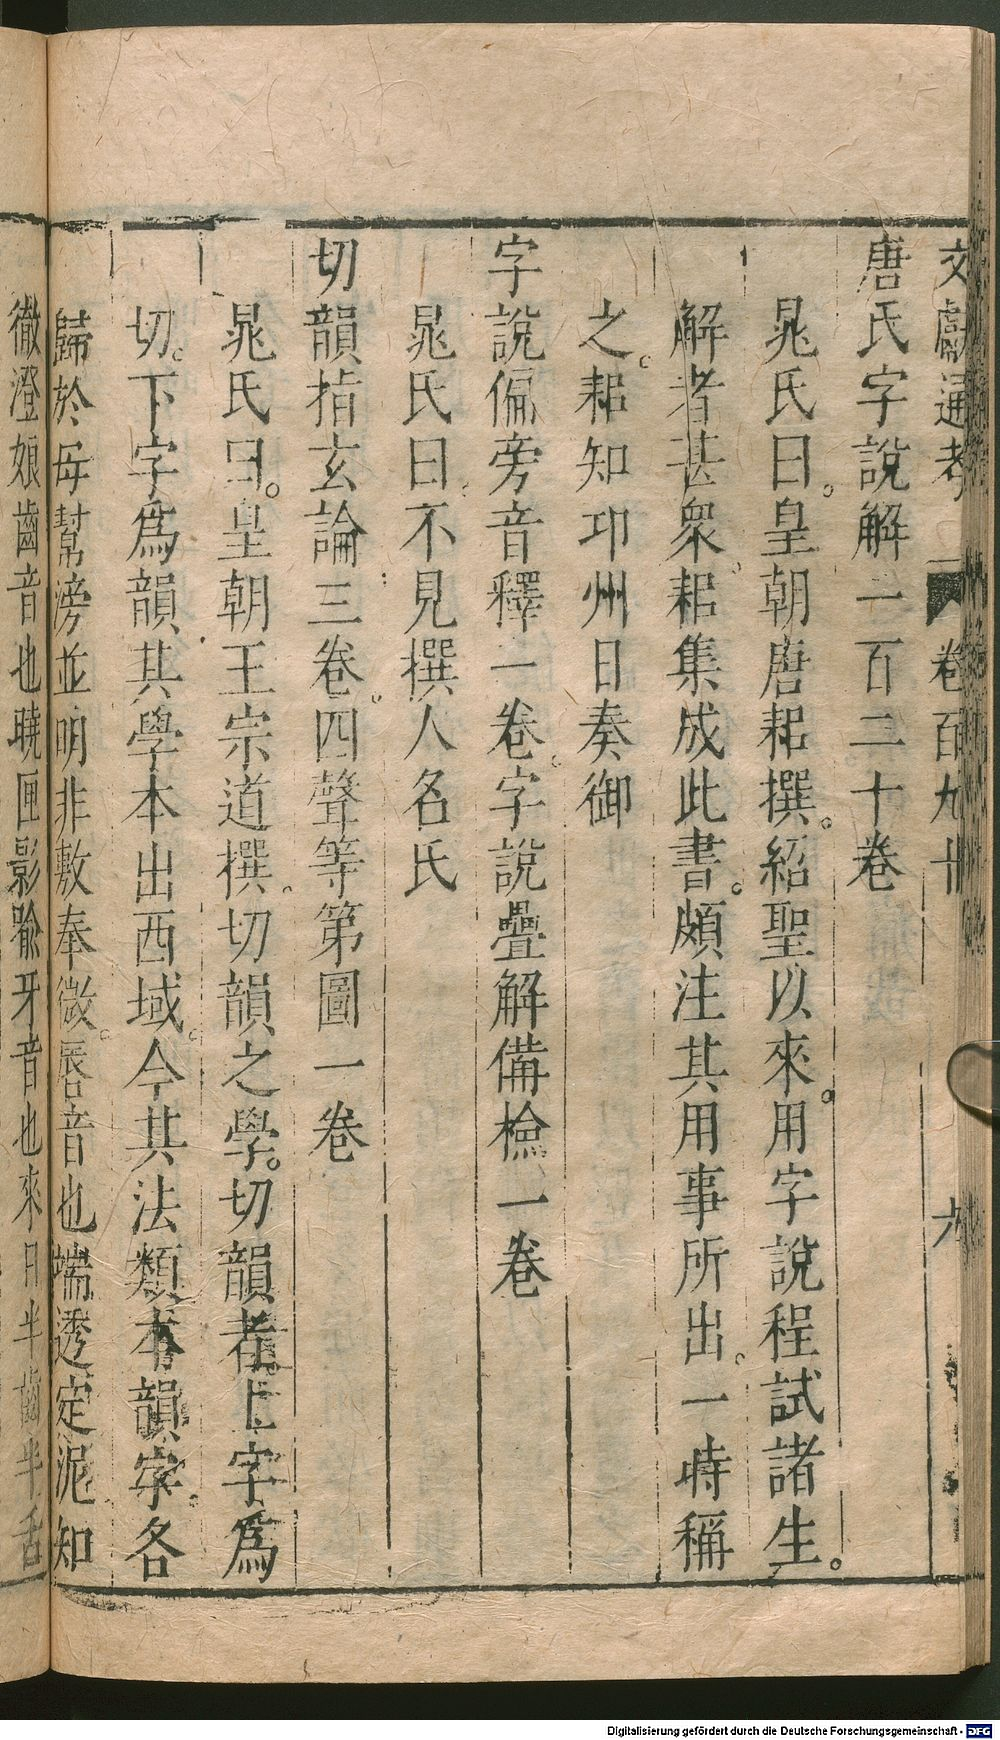 文獻通考 卷百九十 九
唐氏字說解一百二十卷
晁氏曰皇朝唐耜撰紹聖以來用字說程試諸生
解者甚衆耜集成此書頗注其用事所出一時稱
之耜知邛州日奏御
字說偏旁音釋一卷字說疊解備檢一卷
晁氏曰不見撰人名氏
切韻指玄論三卷四聲等第圖一卷
晁氏曰皇朝王宗道撰切韻之學切韻者上字爲
切下字爲韻其學本出西域今其法類本韻字各
歸於母幫滂並明非敷奉微唇音也端透定泥知
徹澄娘齒音也曉匣影喻牙音也來日半齒半舌
Digitalisierung gefördert durch die Deutsche Forschungsgemeinschaft - DFG